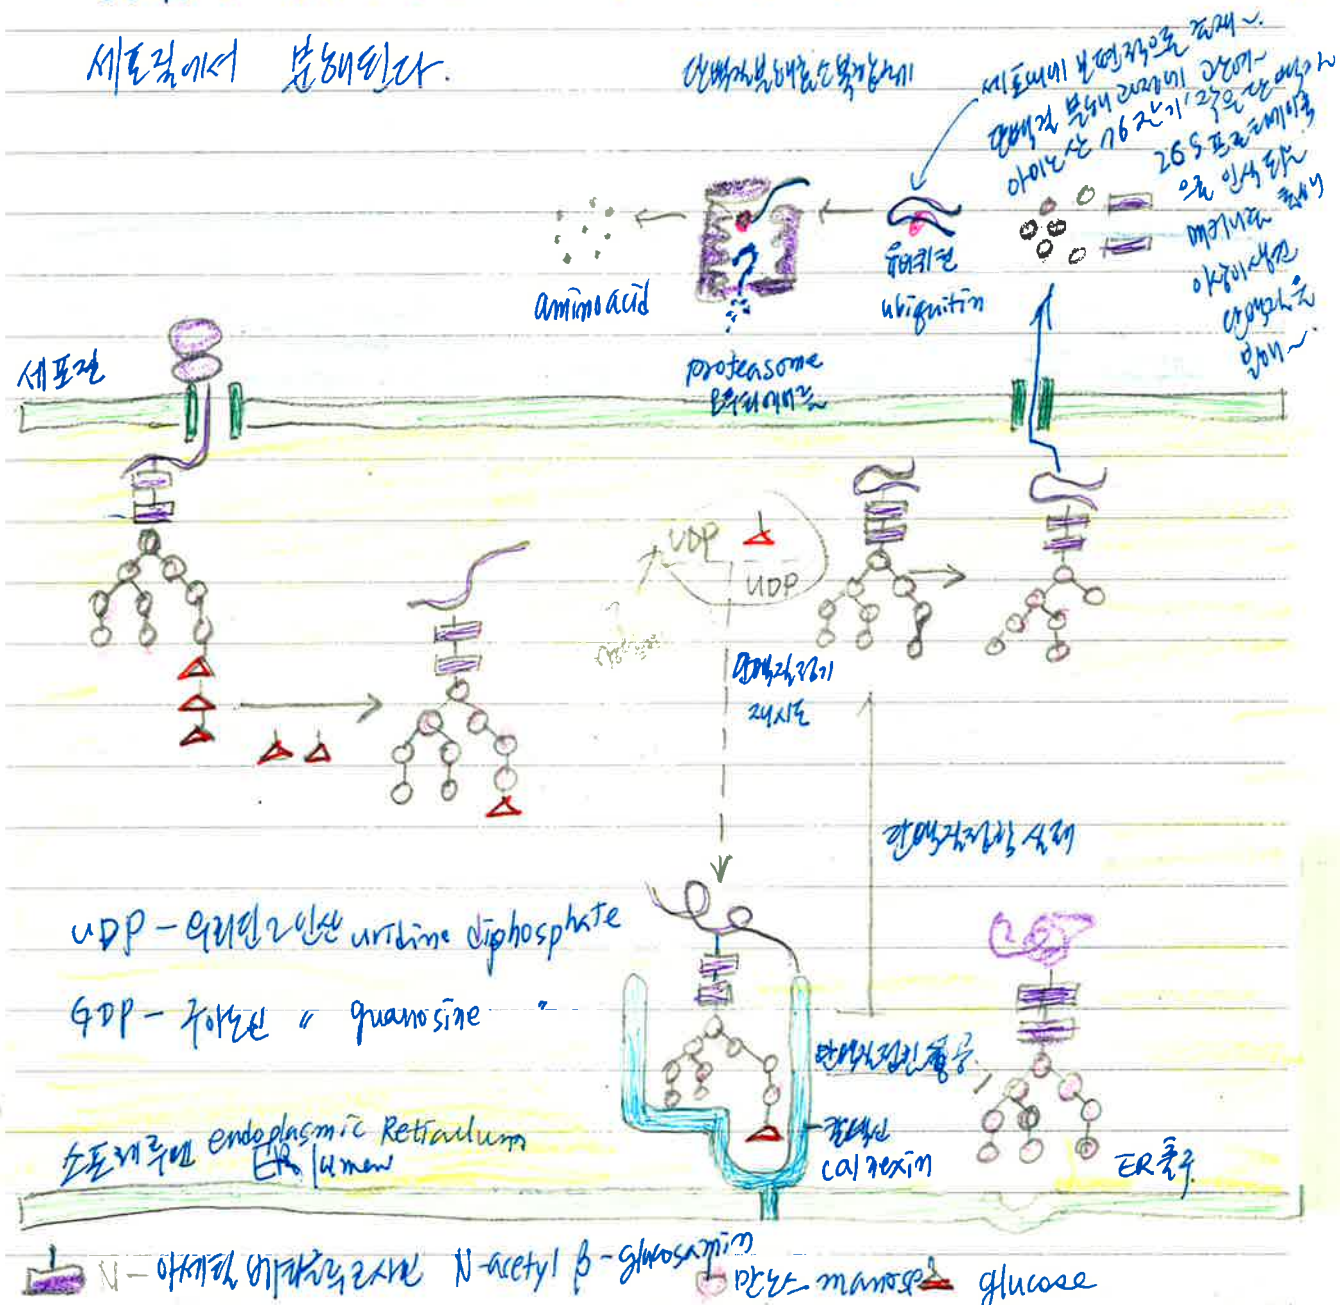 세포질에서 분해된다.
단백질분해효소복합체
세포내에 보편적으로 존재~.
단백질 분해 과정에 관여~
아미노산 76잔기 작은 단백질
26S 프로테아좀
으로 인식 되는
메커니즘 통해
이상이 생긴
단백질을
분해~
aminoacid
유비퀴틴
ubiquitin
proteasome
세포질
UDP
UDP
단백질접기
재시도
단백질접힘 실패
UDP - 우리딘2인산 uridine diphosphate
GDP - 구아노신 " guanosine "
단백질접힌 성공.
소포체루멘 endoplasmic Reticulum
ER lumen
칼넥신
calnexin
ER출구
N-아세틸 베타글루코사민 N-acetyl β-glucosamin
만노스 manose
glucose